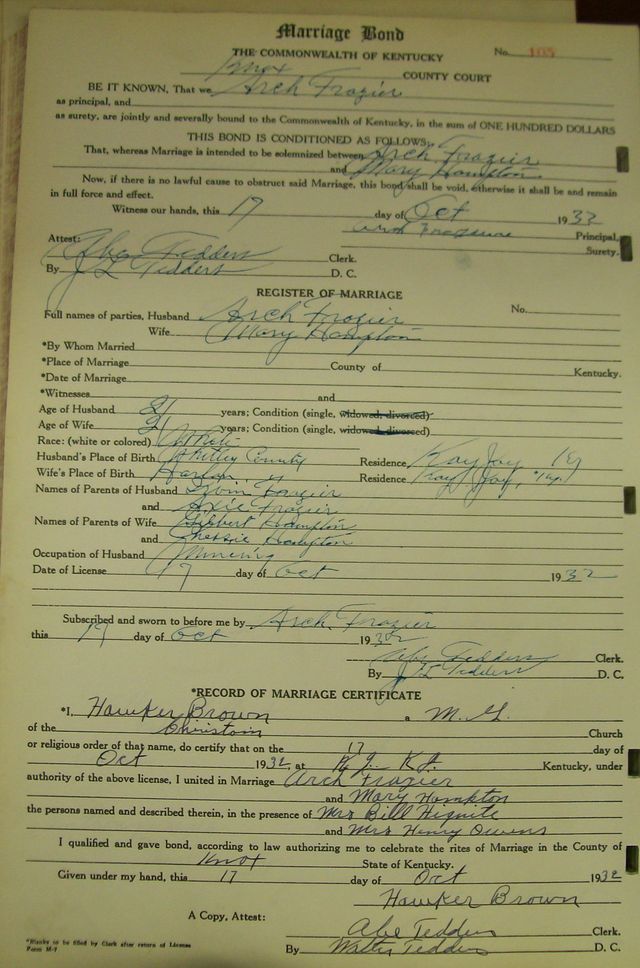 Marriage Bond
THE COMMONWEALTH OF KENTUCKY No. 105
Knox COUNTY COURT
BE IT KNOWN, That we Arch Frazier
as principal, and
as surety, are jointly and severally bound to the Commonwealth of Kentucky, in the sum of ONE HUNDRED DOLLARS
THIS BOND IS CONDITIONED AS FOLLOWS:
That, whereas Marriage is intended to be solemnized between Arch Frozier
and Mary Hampton
Now, if there is no lawful cause to obstruct said Marriage, this bond shall be void, otherwise it shall be and remain
in full force and effect.
Witness our hands, this 17 day of Oct 1932
Arch Principal,
Surety.
Attest: Abe Tedders Clerk.
By J L Tedders D. C.
REGISTER OF MARRIAGE
Full names of parties, Husband Arch Frozier No.
Wife Mary Hampton
*By Whom Married
*Place of Marriage County of Kentucky.
*Date of Marriage
*Witnesses and
Age of Husband 21 years; Condition (single, widowed, divorced)
Age of Wife 21 years; Condition (single, widowed, divorced)
Race: (white or colored) White
Husband's Place of Birth Whitley County Residence Kay Jay Ky
Wife's Place of Birth Harlan, Ky Residence Kay Jay, Ky.
Names of Parents of Husband Frozier
and Frozier
Names of Parents of Wife Gilbert Hampton
and Chessie Hampton
Occupation of Husband Minning
Date of License 17 day of Oct 1932
Subscribed and sworn to before me by Arch Frozier
this 17 day of Oct 1932
Abe Tedders Clerk.
By J L Tedders D. C.
*RECORD OF MARRIAGE CERTIFICATE
*I, Hawker Brown a M. G.
of the Christain Church
or religious order of that name, do certify that on the 17 day of
Oct 1932, at K. J. Ky Kentucky, under
authority of the above license, I united in Marriage Arch Frozier
and Mary Hampton
the persons named and described therein, in the presence of Mrs Bill Hignite
and Mrs Henry Owens
I qualified and gave bond, according to law authorizing me to celebrate the rites of Marriage in the County of
Knox State of Kentucky.
Given under my hand, this 17 day of Oct 1932
Hawker Brown
A Copy, Attest: Abe Tedders Clerk.
By Walter Tedders D. C.
*Blanks to be filled by Clerk after return of License
Form M-7